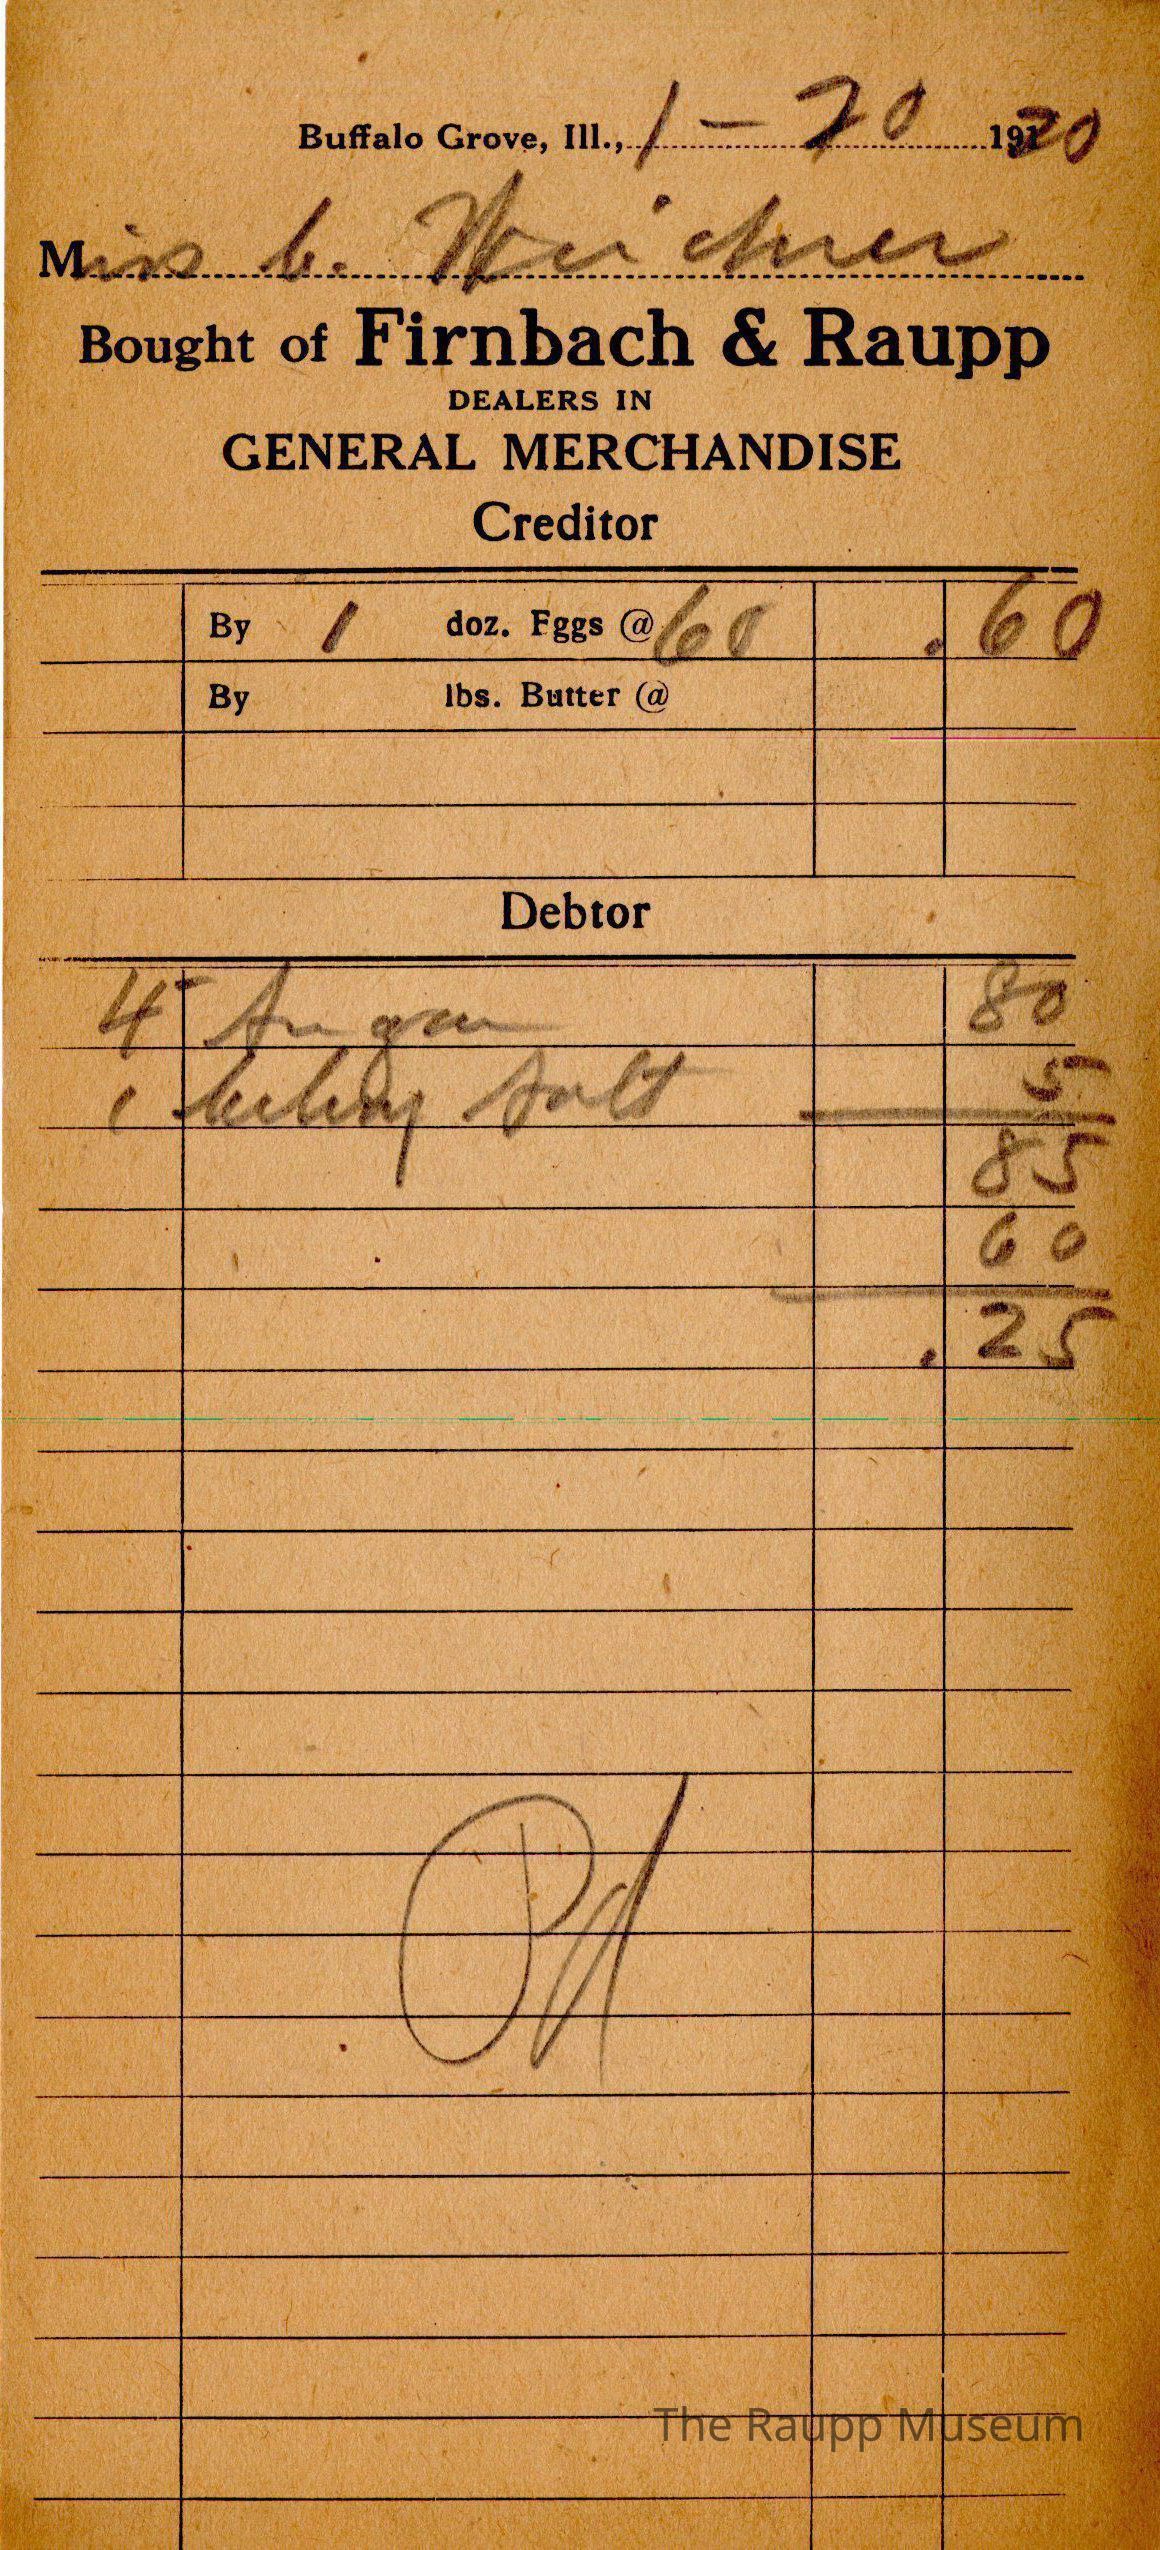 Buffalo Grove, Ill., 1 - 20 1920
Miss C. Weichner
Bought of Firnbach & Raupp
DEALERS IN
GENERAL MERCHANDISE
Creditor
By 1 doz. Eggs @ 60 .60
By lbs. Butter @
Debtor
4 Sugar 80
1 Celery Salt 5
85
60
.25
Pd
The Raupp Museum